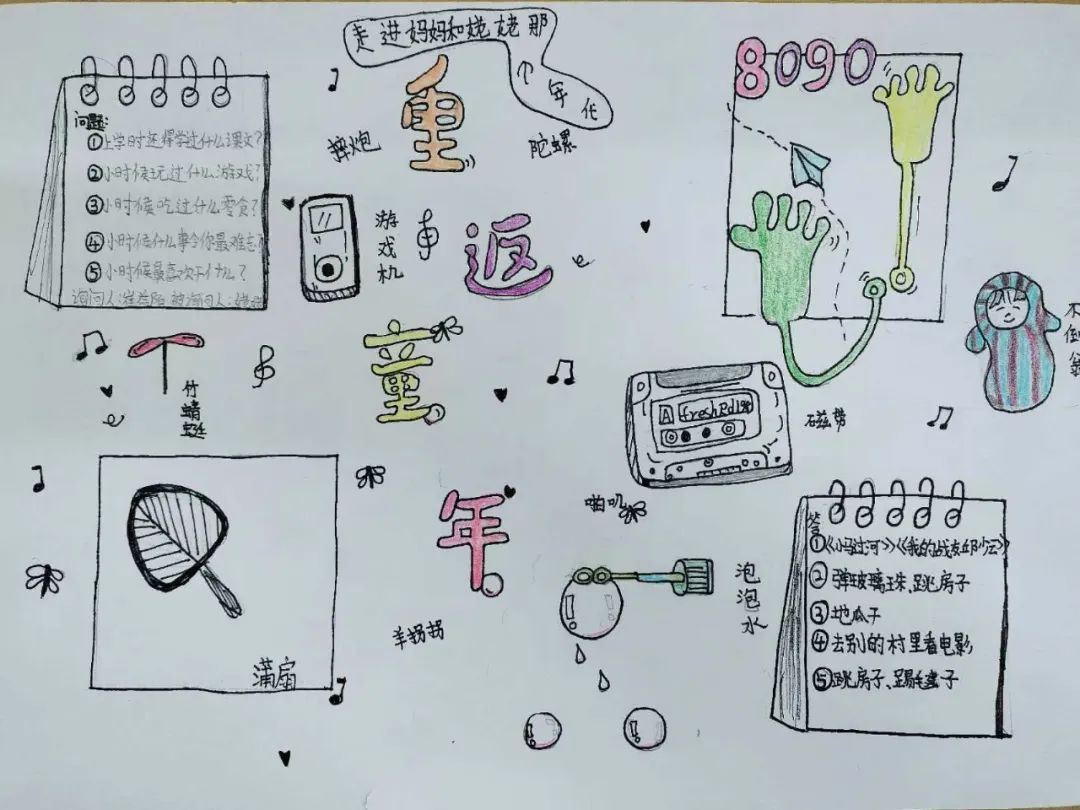 走进妈妈和姥姥那
个年代
重
返
童
年
8090
问题:
①上学时还得学过什么课文?
②小时候玩过什么游戏?
③小时候吃过什么零食?
④小时候什么事令你最难忘?
⑤小时候最喜欢干什么?
询问人:
被询问人:姥姥
摔炮
陀螺
游戏机
竹蜻蜓
不倒翁
A
磁带
啪叽
泡泡水
羊拐拐
蒲扇
答
①《小马过河》《我的战友邱少云》
②弹玻璃珠、跳房子
③地瓜子
④去别的村里看电影
⑤跳房子、踢毽子